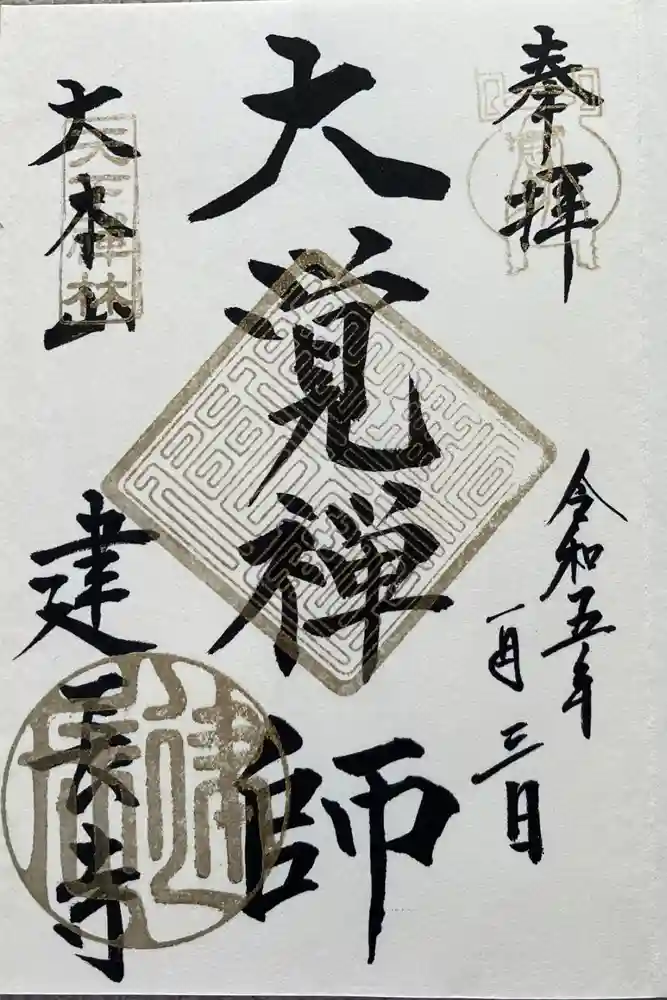 奉拝
令和五年
一月三日
大覚禅師
大本山
建長寺
天下禅林